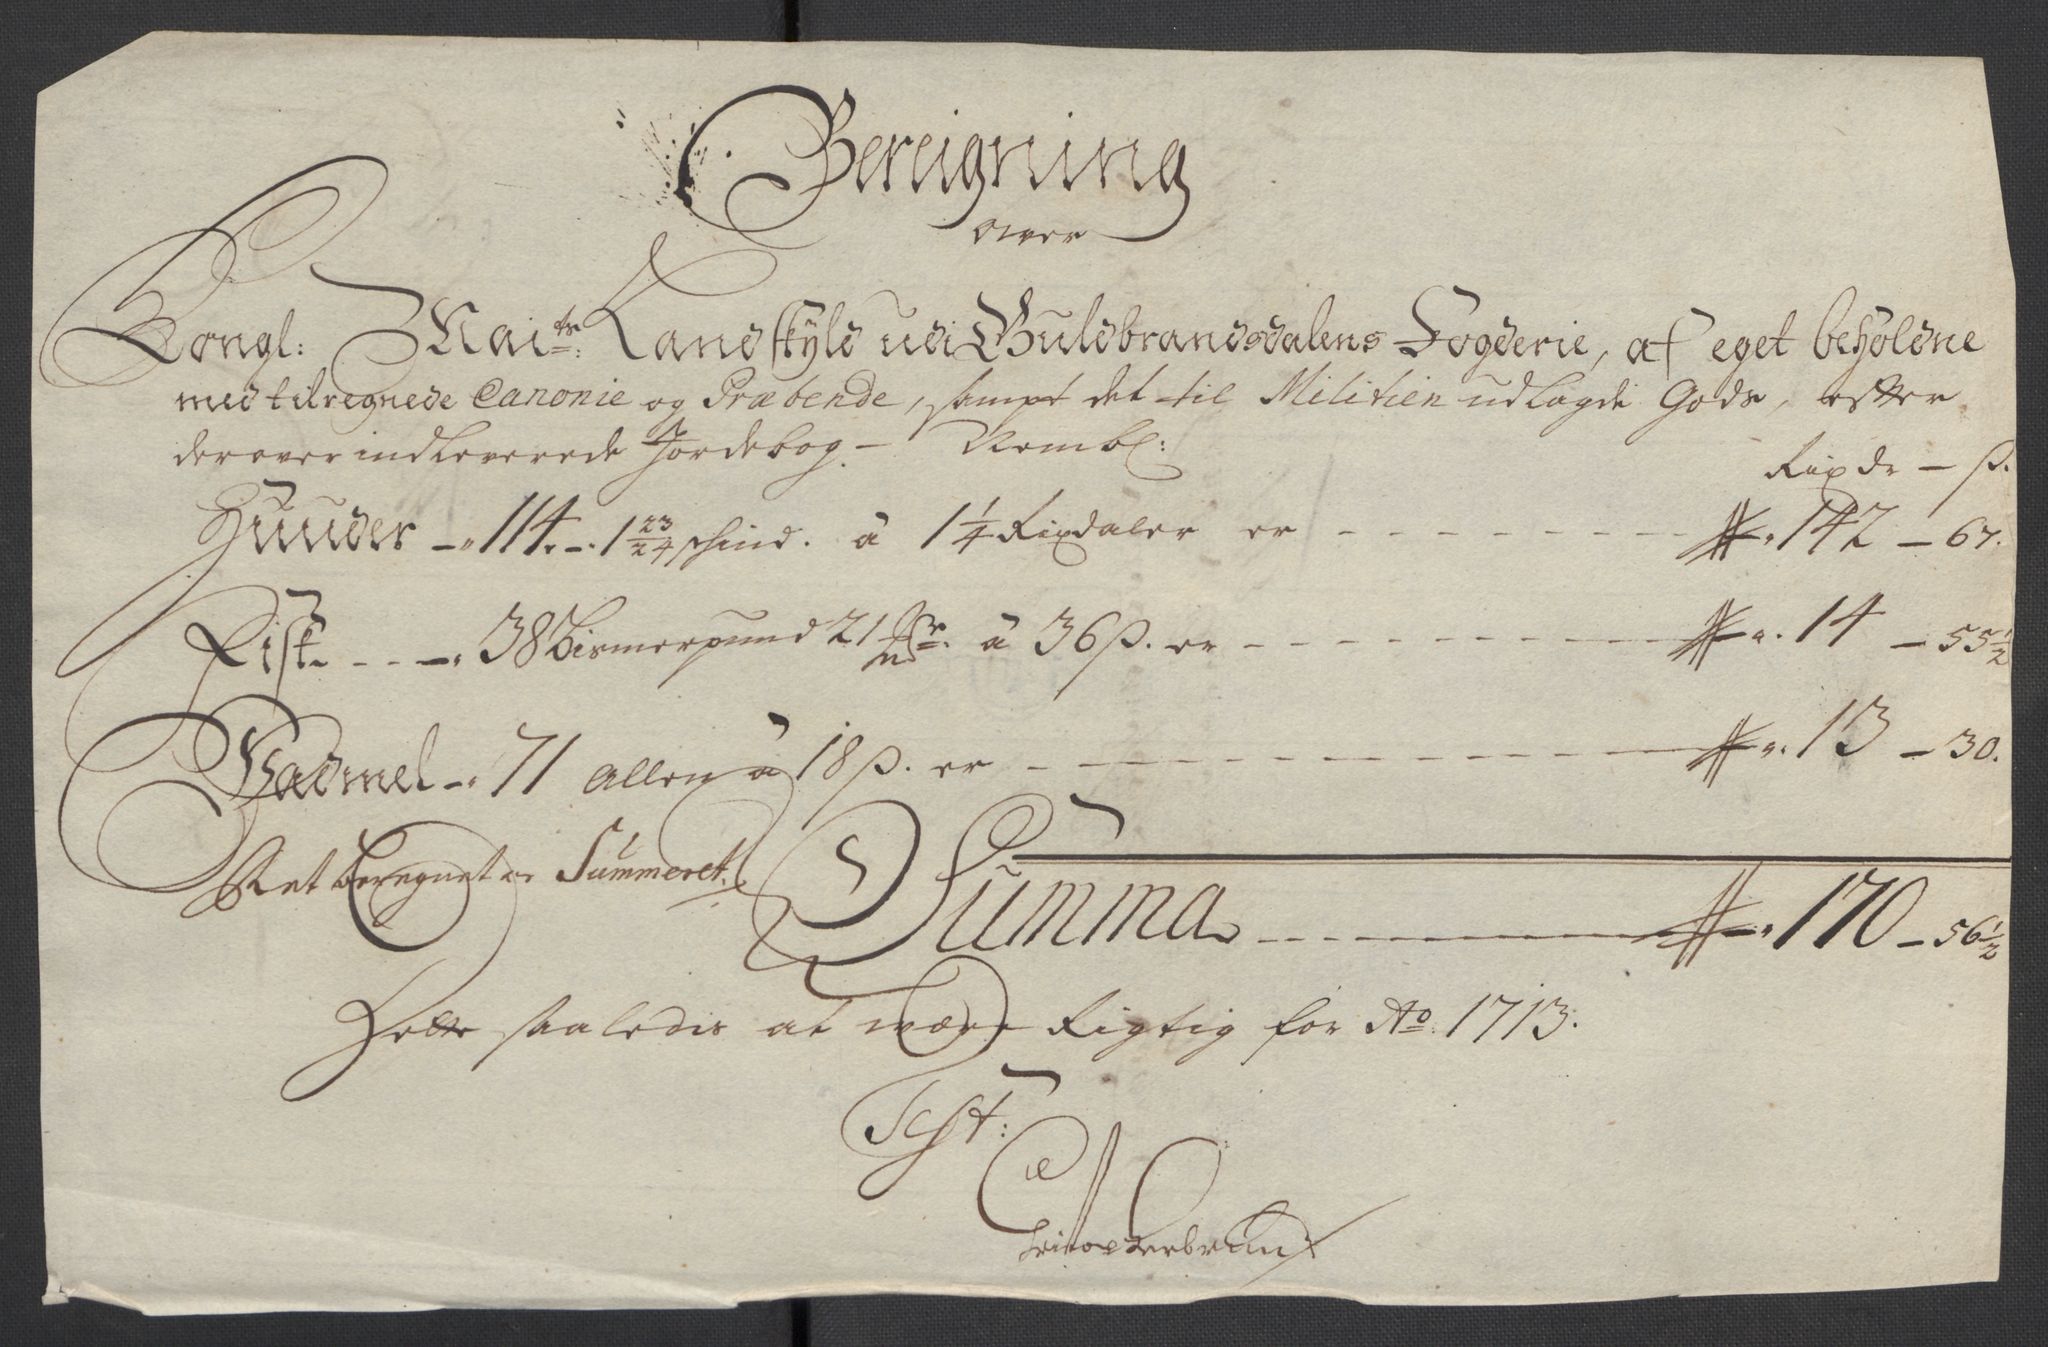 Bereigning
over
Kongl: Mai:ts Landskyld udi Guldbrandsdalens Fogderie, af eget beholdne
med tilregnede Canonie og Præbende, sampt det til Militien udlagde Gods, efter
derover indleverede Jordebog - Nembl:
Rixdr - ß.
Huuder - 114. - 1 23/24 schind. à 1 1/4 Rixdaler er - - - 142 - 67.
Fisk - - - 38 Bismerpund 21 à 36 ß. er - - - 14 - 55 1/2
Wadmel - 71 Allen à 18 ß. er - - - 13 - 30.
Ret beregnet og Summeret.
Summa - - - 170 - 56 1/2
Dette saaledis at være Rigtig for Ao. 1713.
Test: